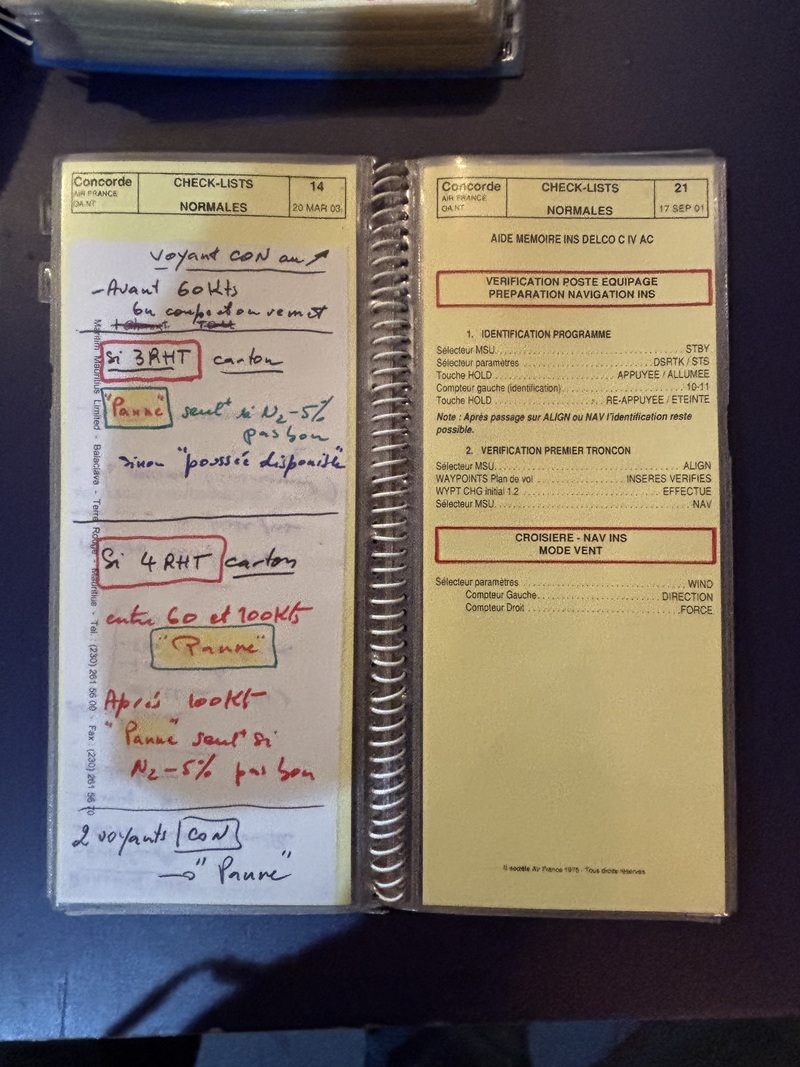 Concorde
AIR FRANCE
OA.NT
CHECK-LISTS
NORMALES
14
20 MAR 03
voyant CON au ↗
- Avant 60 Kts
on coupe et on remet
Si 3 RHT carton
"Panne" seult si N2 - 5%
pas bon
sinon "poussée disponible"
Si 4 RHT carton
entre 60 et 100 Kts
"Panne"
Après 100 Kt
"Panne" seult si
N2 - 5% pas bon
2 voyants CON
→ "Panne"
Maritim Mauritius Limited - Balaclava - Terre Rouge - Mauritius - Tel : (230) 261 56 00 - Fax : (230) 261 56 70
Concorde
AIR FRANCE
OA.NT
CHECK-LISTS
NORMALES
21
17 SEP 01
AIDE MEMOIRE INS DELCO C IV AC
VERIFICATION POSTE EQUIPAGE
PREPARATION NAVIGATION INS
1. IDENTIFICATION PROGRAMME
Sélecteur MSU STBY
Sélecteur paramètres DSRTK / STS
Touche HOLD APPUYEE / ALLUMEE
Compteur gauche (identification) 10-11
Touche HOLD RE-APPUYEE / ETEINTE
Note : Après passage sur ALIGN ou NAV l'identification reste
possible.
2. VERIFICATION PREMIER TRONCON
Sélecteur MSU ALIGN
WAYPOINTS Plan de vol INSERES VERIFIES
WYPT CHG initial 1.2 EFFECTUE
Sélecteur MSU NAV
CROISIERE - NAV INS
MODE VENT
Sélecteur paramètres WIND
Compteur Gauche DIRECTION
Compteur Droit FORCE
© société Air France 1976 - Tous droits réservés